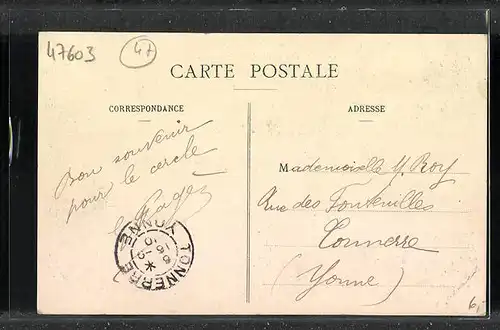 47603
47
CARTE POSTALE
CORRESPONDANCE
ADRESSE
Bon souvenir
pour le cercle
Mademoiselle Y Roy
Rue des Fontenilles
Tonnerre
(Yonne)
TONNERRE
YONNE
6,